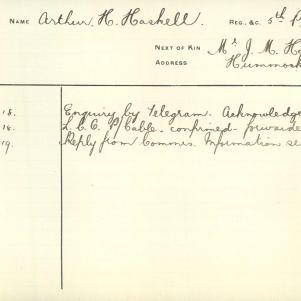 NAME Arthur. H. Haskell. REG. &C. 5th
NEXT OF KIN Mr J. M.
ADDRESS
18. Enquiry by Telegram. Acknowledge
18. L.C.C. P/Cable. confirmed. forwarde
19. Reply from Commrs. Information se